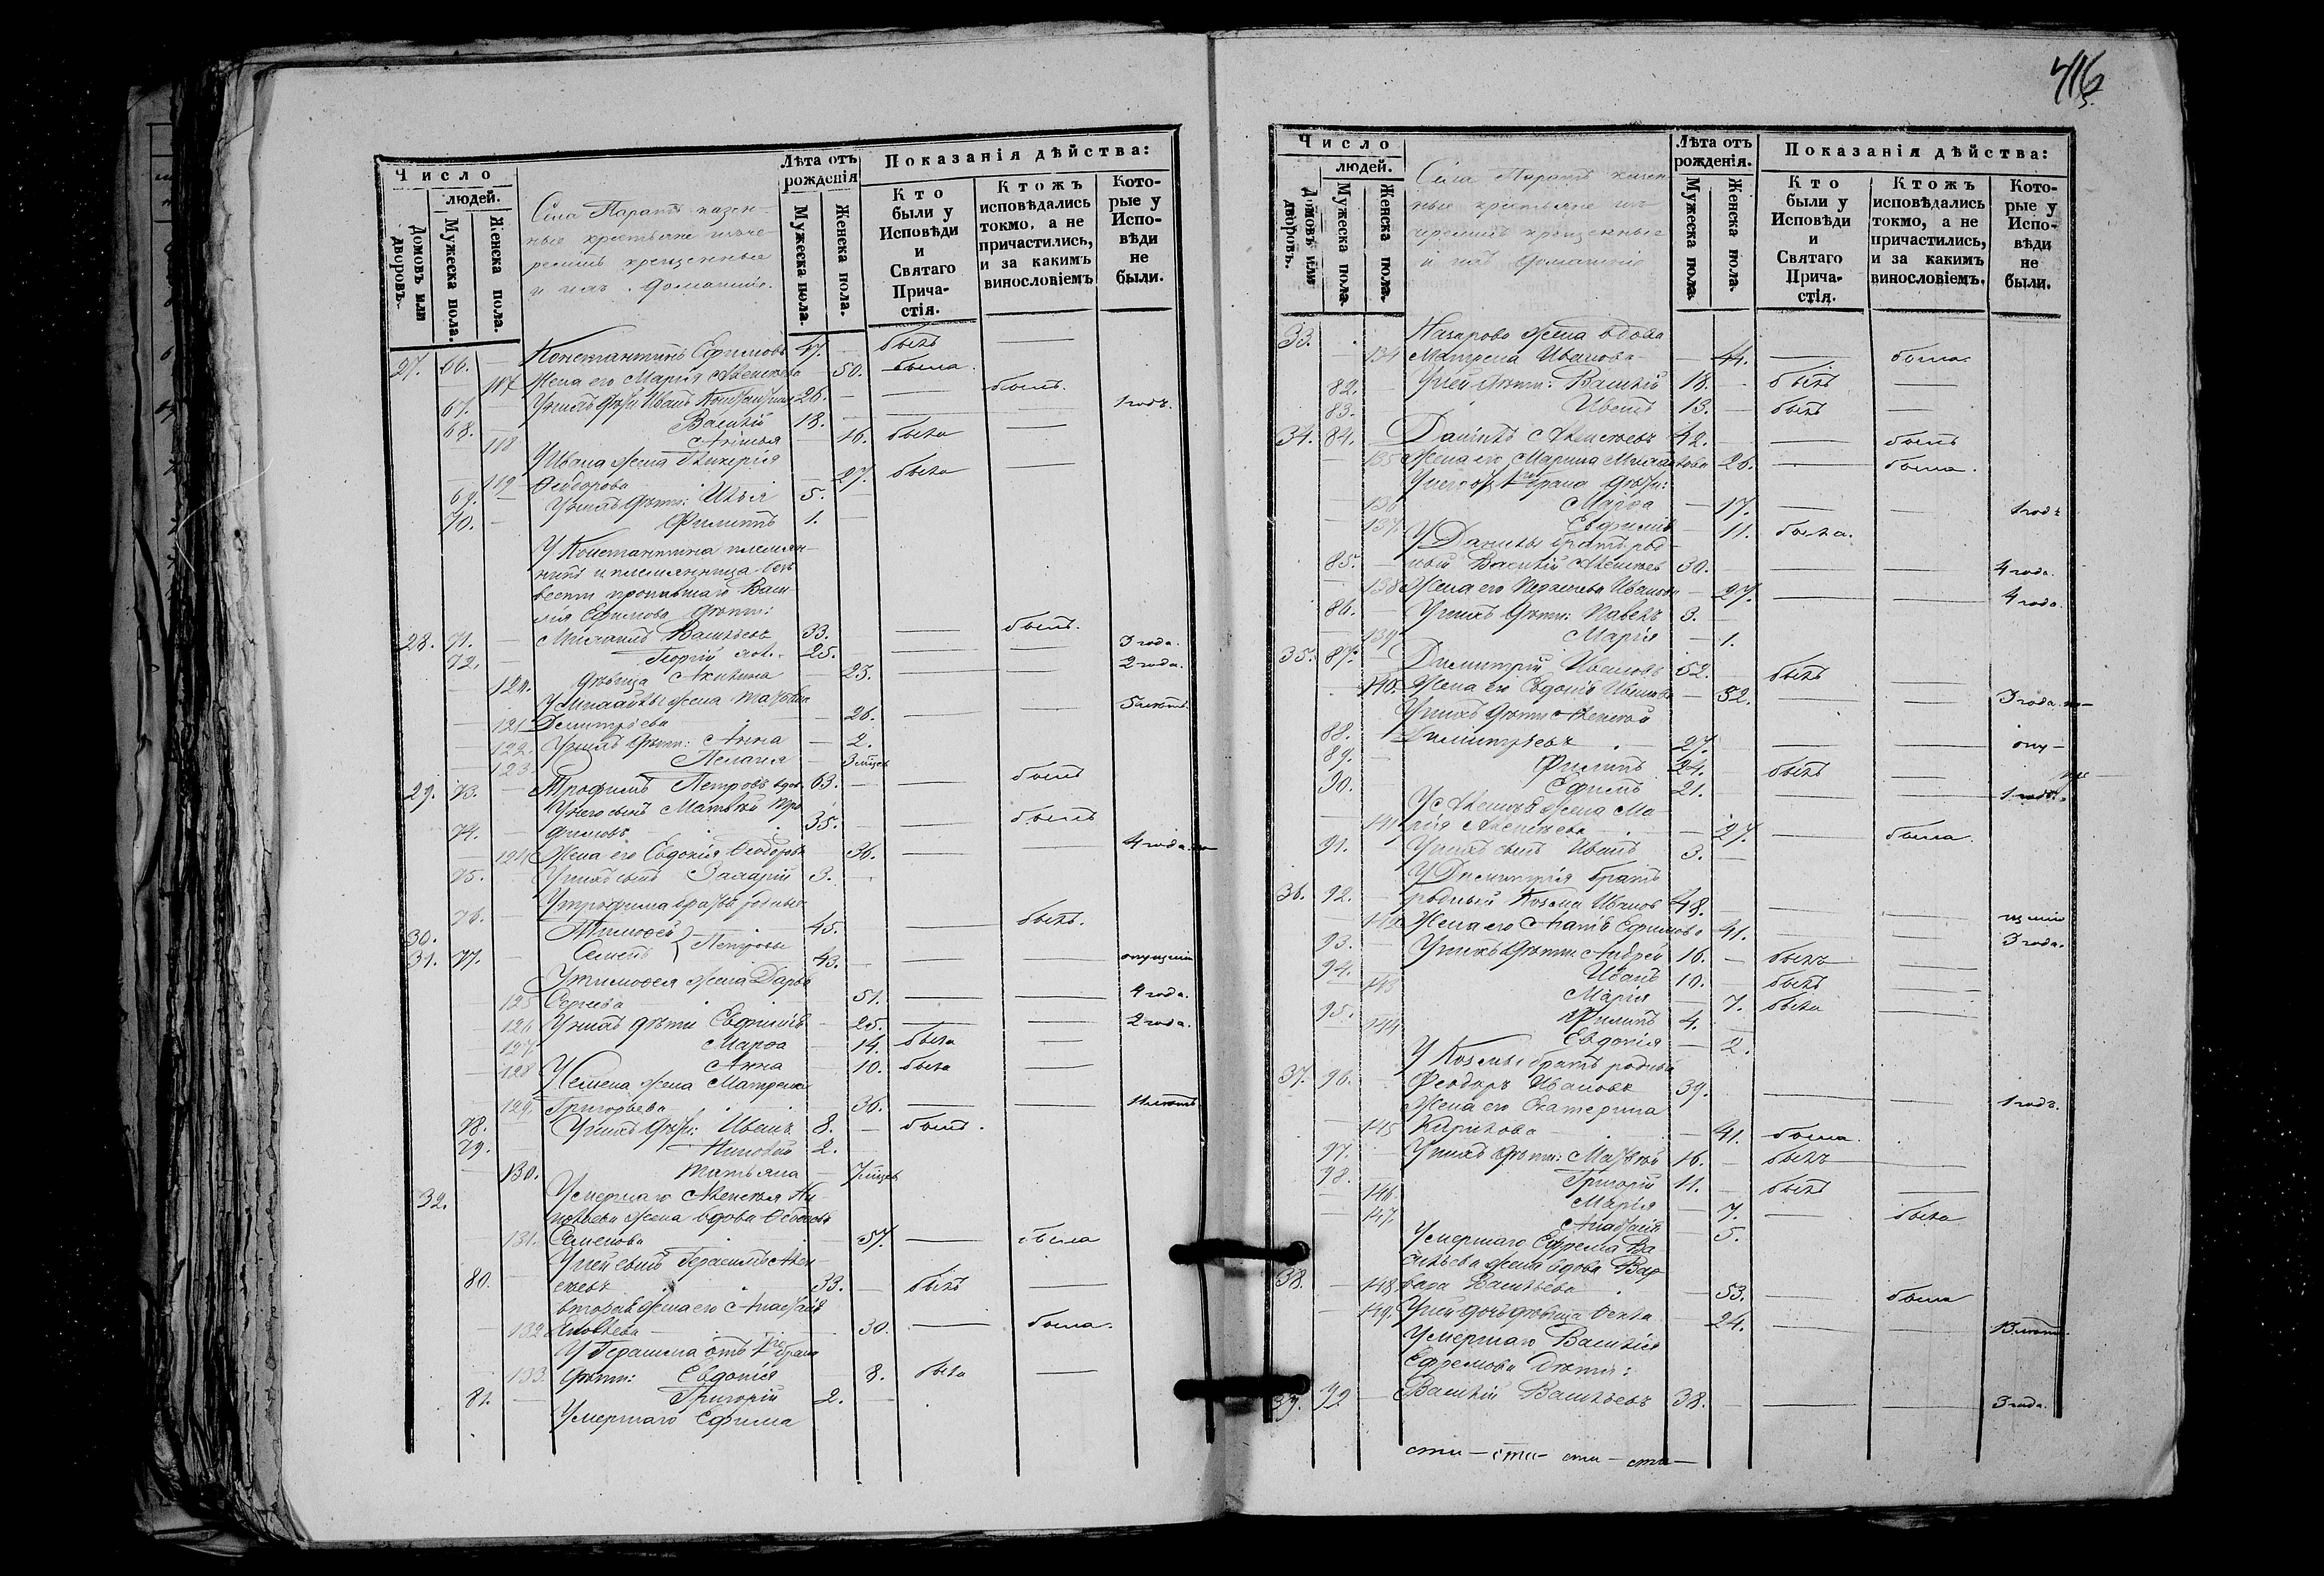 416
Число
людей.
Домовъ или дворовъ.
Мужеска пола.
Женска пола.
Села Паратъ казен-
ные крестьяне изъ че-
ремисъ крещенные
и ихъ домашніе.
Лѣта отъ рожденія
Мужеска пола.
Женска пола.
Показанія дѣйства:
Кто были у Исповѣди и Святаго Прича-стія.
Ктожъ исповѣдались токмо, а не причастились, и за какимъ винословіемъ
Кото-рые у Испо-вѣди не были.
27. 66. — Константинъ Ефимовъ 47. — былъ —
117 Жена его Марія Алексѣева — 50. была
67. Ихъ дѣти Иванъ Константиновъ 26. — — былъ.
68. Василій 18. — — 1 годъ.
118 — 16. была —
У Ивана жена Гликерія
119 Ѳеодорова — 27. была —
69. — У нихъ дѣти: Илья 5. —
70. — Филиппъ 1. —
У Константина племян-
никъ и племянница безъ
вести пропавшаго Васи-
лія Ефимова дѣти:
28. 71. — Михаилъ Васильевъ 33. — былъ.
72. — Георгій 25. — — 3 года.
120. дѣвица Акилина — 23. — — 2 года.
У Михайлы жена Татьяна
121 Димитріева — 26. — — 5 лѣтъ
122. У нихъ дѣти: Анна — 2.
123. Пелагія — 3 мѣсяц
29. 73. — Трофимъ Петровъ вдов. 63. — — былъ
У него сынъ Матвѣй Тро-
74. — фимовъ 35. — былъ
124 Жена его Евдокія Ѳеодорова 36. — — 4 года
75. — У нихъ сынъ 3. —
У Трофима братья родные
30. 76. — Тимоѳей } Петровы 45. — былъ.
31. 77. — Семенъ 43. — — опущеніи
У Тимоѳея жена Дарья
125 Сергѣева 51. — — 4 года.
126 У нихъ дѣти Евфимія — 25. — — 2 года.
127 Марѳа — 14. была —
128 Анна — 10. была —
У Семена жена Матрена
129. Григорьева 36. — —
78. — У нихъ дѣти: Иванъ 8. — былъ.
79. 2. —
130. Татьяна — 7 мѣсяц
32. Умершаго Алексѣя
жена вдова Ѳедосья
131. Семенова 57. — была
У ней сынъ Герасимъ Алек-
80. — сѣевъ 33. — былъ —
вторая жена его Анастасія
132 Яковлева — 30. — была.
У Герасима отъ 1го брака
133. дѣти: Евдокія 8. была —
81. — Григорій 2. —
Умершаго Ефима
Число
людей.
Домовъ или дворовъ.
Мужеска пола.
Женска пола.
Села Паратъ казен-
ные крестьяне изъ
черемисъ крещенные
и ихъ домашніе
Лѣта отъ рожденія.
Мужеска пола.
Женска пола.
Показанія дѣйства:
Кто были у Исповѣди и Святаго Прича-стія.
Ктожъ исповѣдались токмо, а не причастились, и за какимъ винословіемъ.
Кото-рые у Испо-вѣди не были.
33. Назарова жена вдова
134 Матрена Иванова — 44. — была.
82. — У ней дѣти: Василій 18. — былъ —
83. Иванъ 13. — былъ —
34. 84. — Даніилъ Алексѣевъ 42. — — былъ
135 Жена его Марина Михайлова 26. — была.
У него отъ 1го брака дѣти:
136 Марѳа — 17. — — 1 годъ
137. Евфимія — 11. была.
У Данилы братъ род-
85. — ный Василій Алексѣев 30. — — — 4 года.
138 Жена его Иванова — 27. — — 4 года.
86. — У нихъ дѣти: Павелъ 3. —
139 Марія — 1.
35. 87. — Димитрій Ивановъ 52. былъ —
140. Жена его Евдокія Иванова — 52. — — 3 года. по-
У нихъ дѣти Алексѣй
88. Димитріевъ 27. — — — опу-
89. Филиппъ 24. — былъ —
90. Ефимъ 21. — — 1 годъ.
У Алексѣя жена Ма-
141 рія Алексѣева — 27. — была.
91. У нихъ сынъ Иванъ 3. —
У Димитрія братъ
36. 92. — родный Козма Иванов 48. — — щеніи
142 Жена его Агаѳія Ефимова 41. — — 3 года.
93. У нихъ дѣти Андрей 16. — былъ —
94. Иванъ 10. — былъ —
143 Марія — 7. была —
95. Филиппъ 4. —
144 Евдокія — 2.
У Козмы братъ родный
37. 96. — Ѳеодоръ Ивановъ 39. — — 1 годъ.
Жена его Екатерина
145 Кирилова — 41. была.
97. У нихъ дѣти: Матвѣй 16. — былъ —
98. Григорій 11. — былъ —
146. Марія — 7. — была
147. Анастасія — 5.
Умершаго Ефрема Ва-
сильева жена вдова Вар-
38. — 148 вара Васильева — 53. — была
149. У ней дочь дѣвица Ѳекла — 24. — —
Умершаго Василія
Ефремова дѣти:
39. 99. — Василій Васильевъ 38. — — — 3 года.
сти — сти — сти — сти —